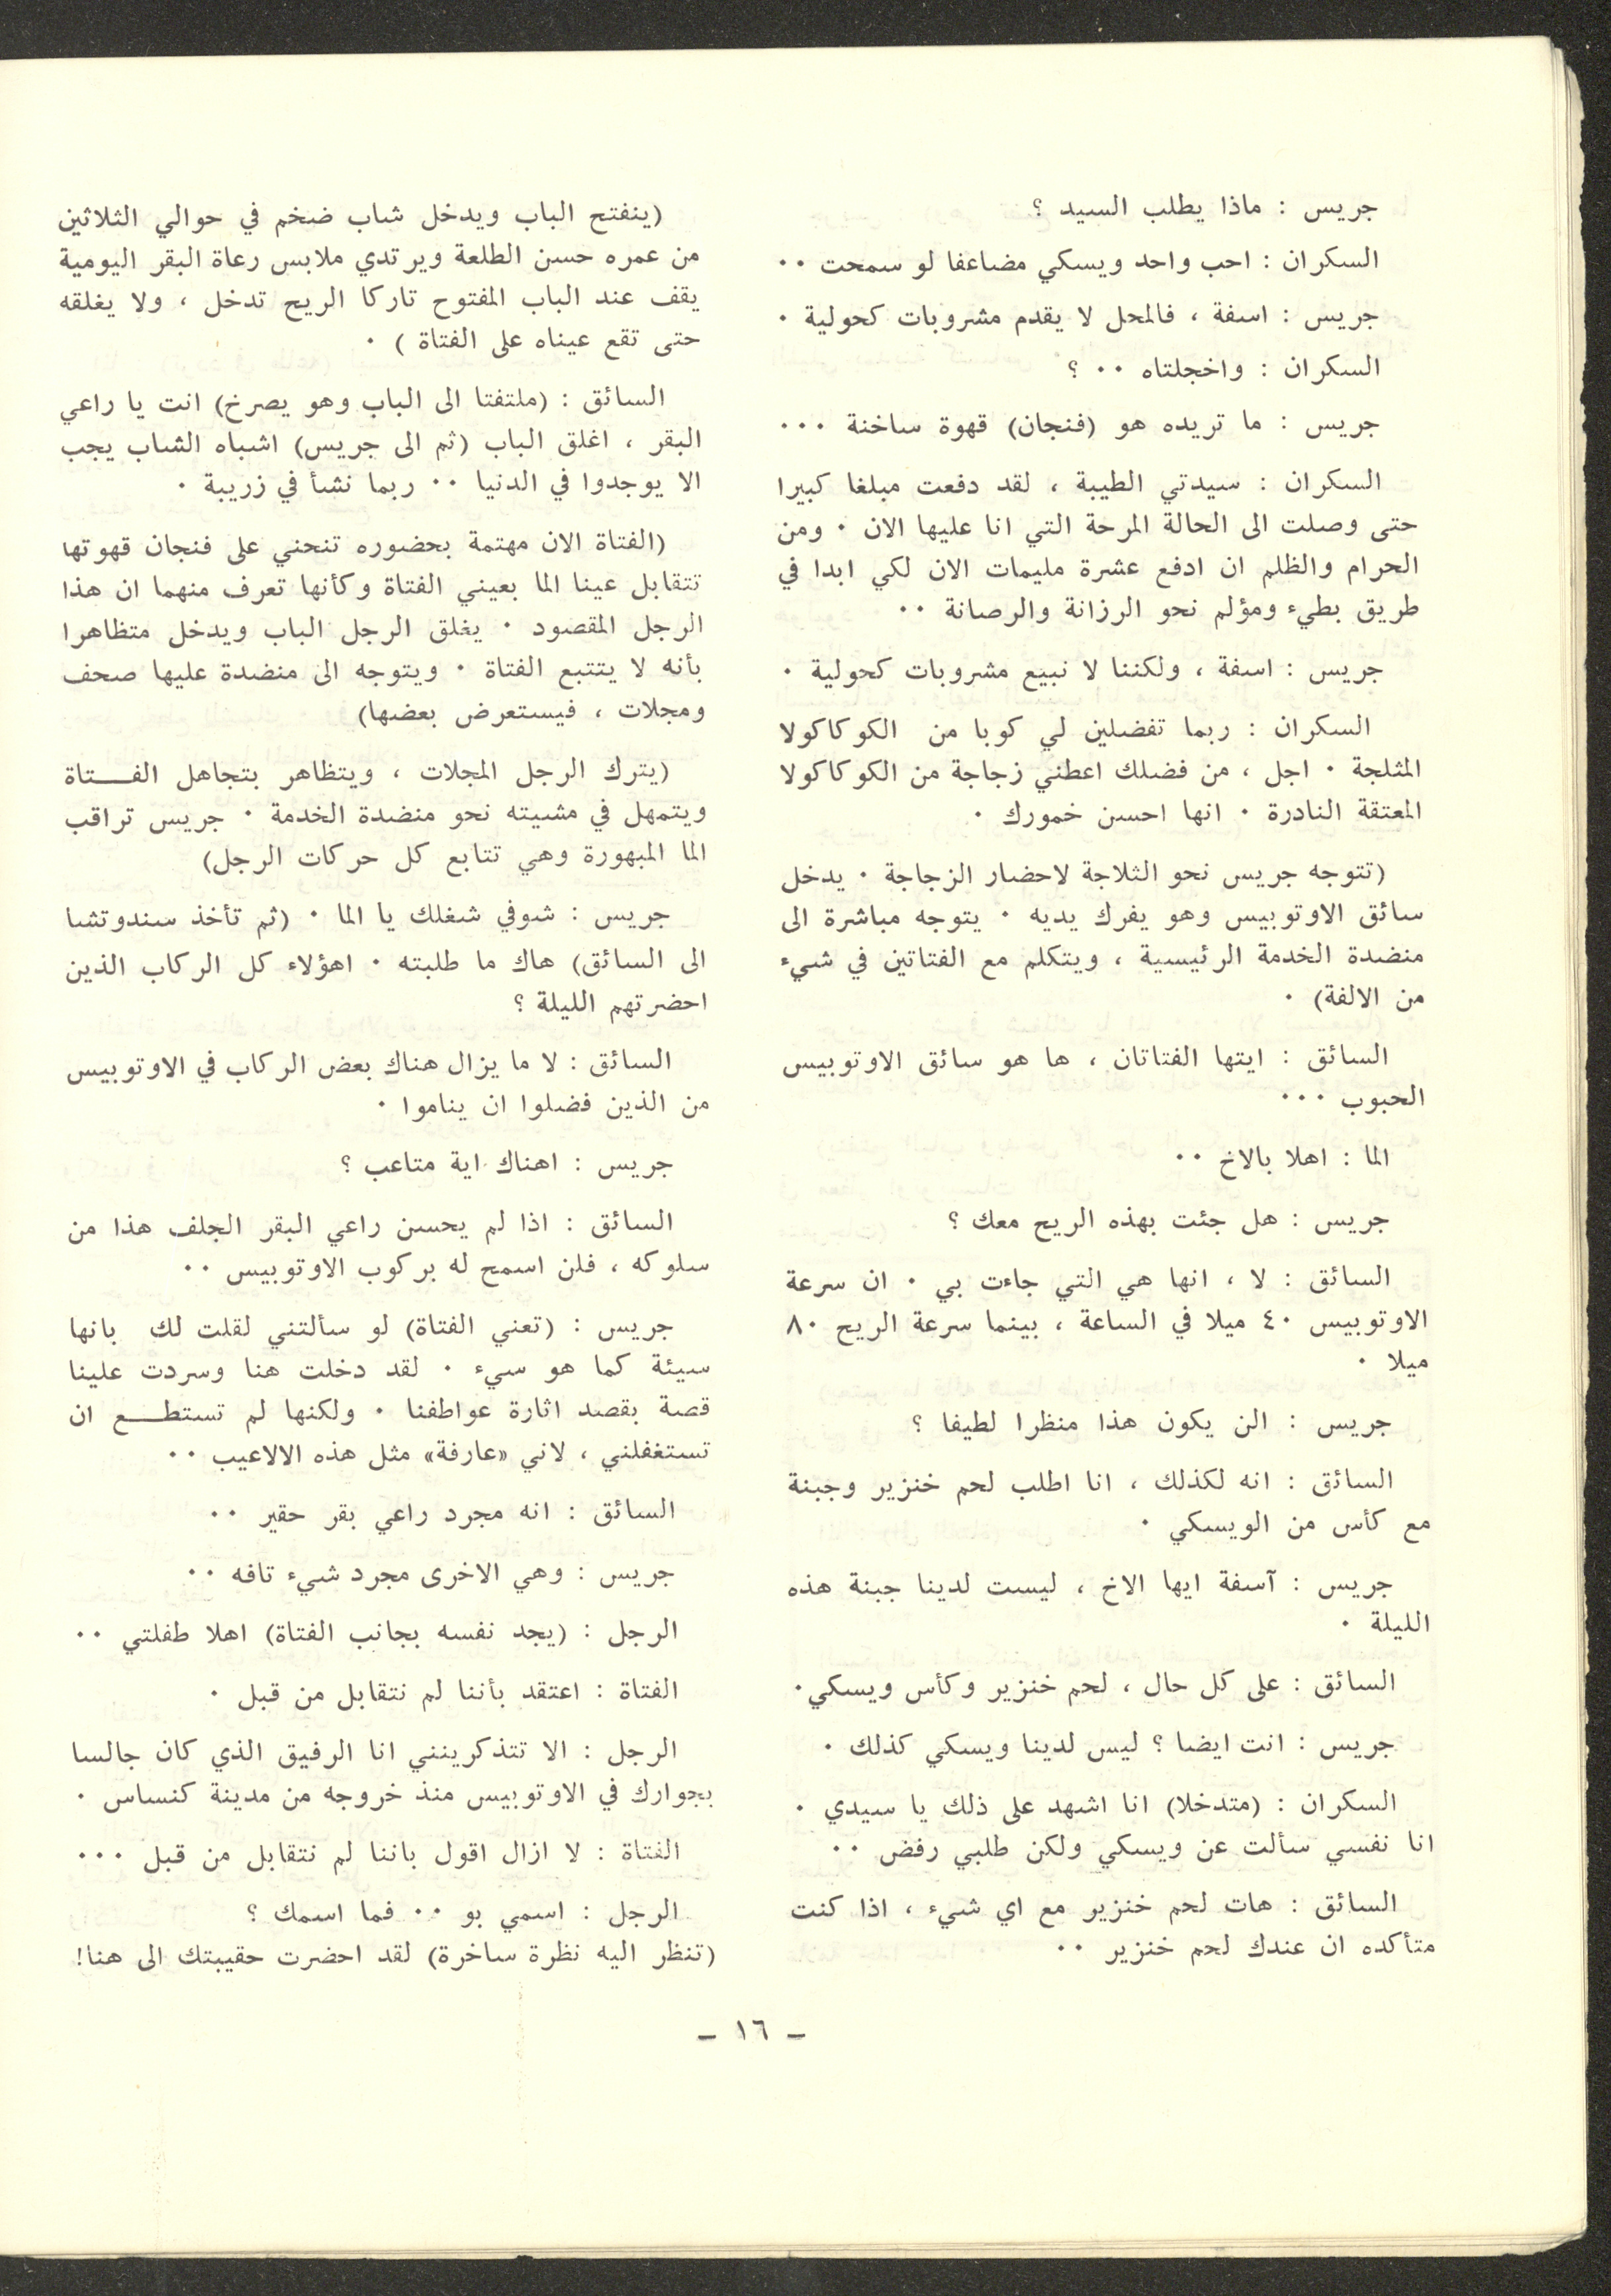 جريس : ماذا يطلب السيد ؟
السكران : احب واحد ويسكي مضاعفا لو سمحت ٠٠
جريس : اسفة ، فالمحل لا يقدم مشروبات كحولية ٠
السكران : واخجلتاه ٠٠ ؟
جريس : ما تريده هو (فنجان) قهوة ساخنة ٠٠٠
السكران : سيدتي الطيبة ، لقد دفعت مبلغا كبيرا
حتى وصلت الى الحالة المرحة التي انا عليها الان ٠ ومن
الحرام والظلم ان ادفع عشرة مليمات الان لكي ابدا في
طريق بطيء ومؤلم نحو الرزانة والرصانة ٠٠
جريس : اسفة ، ولكننا لا نبيع مشروبات كحولية ٠
السكران : ربما تفضلين لي كوبا من الكوكاكولا
المثلجة ٠ اجل ، من فضلك اعطني زجاجة من الكوكاكولا
المعتقة النادرة ٠ انها احسن خمورك ٠
(تتوجه جريس نحو الثلاجة لاحضار الزجاجة ٠ يدخل
سائق الاوتوبيس وهو يفرك يديه ٠ يتوجه مباشرة الى
منضدة الخدمة الرئيسية ، ويتكلم مع الفتاتين في شيء
من الالفة) ٠
السائق : ايتها الفتاتان ، ها هو سائق الاوتوبيس
الحبوب ٠٠٠
الما : اهلا بالاخ ٠٠
جريس : هل جئت بهذه الريح معك ؟
السائق : لا ، انها هي التي جاءت بي ٠ ان سرعة
الاوتوبيس ٤٠ ميلا في الساعة ، بينما سرعة الريح ٨٠
ميلا ٠
جريس : الن يكون هذا منظرا لطيفا ؟
السائق : انه لكذلك ، انا اطلب لحم خنزير وجبنة
مع كأس من الويسكي ٠
جريس : آسفة ايها الاخ ، ليست لدينا جبنة هذه
الليلة ٠
السائق : على كل حال ، لحم خنزير وكأس ويسكي٠
جريس : انت ايضا ؟ ليس لدينا ويسكي كذلك ٠
السكران : (متدخلا) انا اشهد على ذلك يا سيدي ٠
انا نفسي سألت عن ويسكي ولكن طلبي رفض ٠٠
السائق : هات لحم خنزير مع اي شيء ، اذا كنت
متأكده ان عندك لحم خنزير ٠٠
(ينفتح الباب ويدخل شاب ضخم في حوالي الثلاثين
من عمره حسن الطلعة ويرتدي ملابس رعاة البقر اليومية
يقف عند الباب المفتوح تاركا الريح تدخل ، ولا يغلقه
حتى تقع عيناه على الفتاة ) ٠
السائق : (ملتفتا الى الباب وهو يصرخ) انت يا راعي
البقر ، اغلق الباب (ثم الى جريس) اشباه الشاب يجب
الا يوجدوا في الدنيا ٠٠ ربما نشأ في زريبة ٠
(الفتاة الان مهتمة بحضوره تنحني على فنجان قهوتها
تتقابل عينا الما بعيني الفتاة وكأنها تعرف منهما ان هذا
الرجل المقصود ٠ يغلق الرجل الباب ويدخل متظاهرا
بأنه لا يتتبع الفتاة ٠ ويتوجه الى منضدة عليها صحف
ومجلات ، فيستعرض بعضها)
(يترك الرجل المجلات ، ويتظاهر بتجاهل الفـــتاة
ويتمهل في مشيته نحو منضدة الخدمة ٠ جريس تراقب
الما المبهورة وهي تتابع كل حركات الرجل)
جريس : شوفي شغلك يا الما ٠ (ثم تأخذ سندوتشا
الى السائق) هاك ما طلبته ٠ اهؤلاء كل الركاب الذين
احضرتهم الليلة ؟
السائق : لا ما يزال هناك بعض الركاب في الاوتوبيس
من الذين فضلوا ان يناموا ٠
جريس : اهناك اية متاعب ؟
السائق : اذا لم يحسن راعي البقر الجلف هذا من
سلوكه ، فلن اسمح له بركوب الاوتوبيس ٠٠
جريس : (تعني الفتاة) لو سألتني لقلت لك بانها
سيئة كما هو سيء ٠ لقد دخلت هنا وسردت علينا
قصة بقصد اثارة عواطفنا ٠ ولكنها لم تستطـــع ان
تستغفلني ، لاني «عارفة» مثل هذه الالاعيب ٠٠
السائق : انه مجرد راعي بقر حقير ٠٠
جريس : وهي الاخرى مجرد شيء تافه ٠٠
الرجل : (يجد نفسه بجانب الفتاة) اهلا طفلتي ٠٠
الفتاة : اعتقد بأننا لم نتقابل من قبل ٠
الرجل : الا تتذكرينني انا الرفيق الذي كان جالسا
بجوارك في الاوتوبيس منذ خروجه من مدينة كنساس ٠
الفتاة : لا ازال اقول باننا لم نتقابل من قبل ٠٠٠
الرجل : اسمي بو ٠٠ فما اسمك ؟
(تنظر اليه نظرة ساخرة) لقد احضرت حقيبتك الى هنا!
– ١٦ –